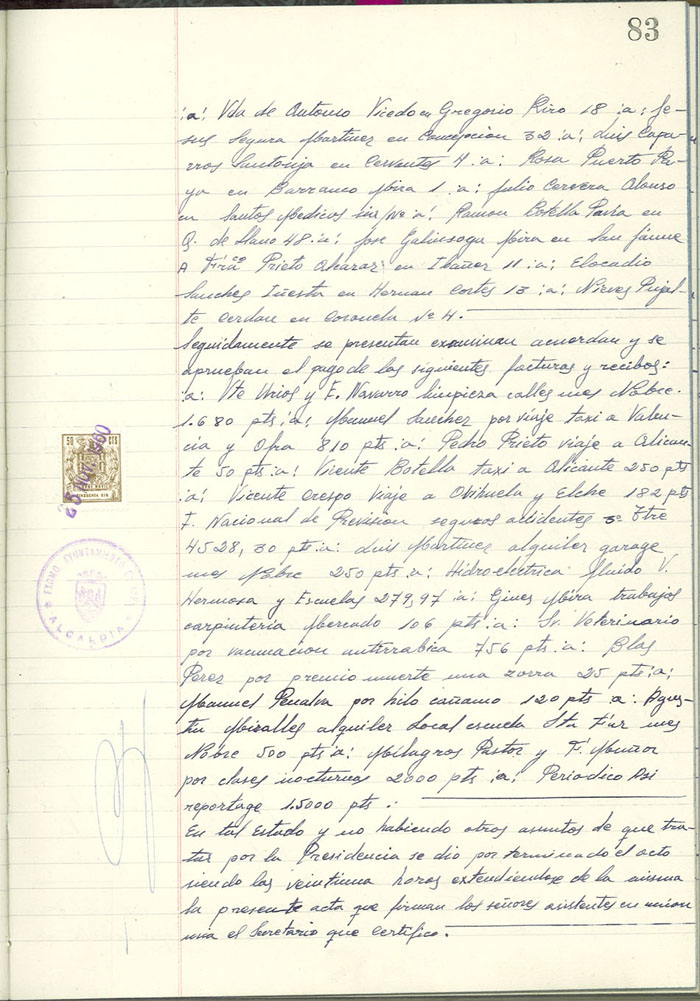 83
:a: Vda de Antonso Vicedo en Gregorio Riro 18 :a: Je-
sus Segura Martinez en Concepcion 32 :a: Luis Capa-
rros Santonja en Cervantes 4 :a: Rosa Puerto Pa-
ya en Barranco Mira 1 :a: Julio Cervera Alonso
en Santos Medicos sin/no :a: Ramon Botella Pavia en
Q. de Llano 48 :a: Jose Galinsoga Mira en San Jaime
A Frco Prieto Alcaraz en Ibañez 11 :a: Elocadio
Sanches Iñesta en Hernan Cortes 13 :a: Nieves Pujal-
te Cerdan en Coronela Nº 4.
Seguidamente se presentan examinan acuerdan y se
aprueban el pago de las siguientes facturas y recibos:
:a: Vte Urios y F. Navarro limpieza calles mes Nobre.
1.680 pts :a: Manuel Sanchez por viaje taxi a Valen-
cia y Ofra 810 pts :a: Pedro Prieto viaje a Alican-
te 50 pts :a: Vicente Botella taxi a Alicante 250 pts
:a: Vicente Crespo viaje a Orihuela y Elche 182 pts
F. Nacional de Prevision seguros accidentes 3º Ttre
4528,30 pts :a: Luis Martinez alquiler garage
mes Nobre 250 pts :a: Hidroelectrica fluido V.
Hermosa y Escuelas 279,97 :a: Gines Mira trabajos
carpinteria Mercado 106 pts :a: Sr. Veterinario
por vacunacion antirrabica 756 pts :a: Blas
Perez por premio muerte una zorra 25 pts :a:
Manuel Penalva por hilo cañamo 120 pts :a: Agus-
tin Miralles alquiler Local escuela Sta Faz mes
Nobre 500 pts :a: Milagros Pastor y F. Muñoz
por clases nocturnas 2000 pts :a: Periodico Asi
reportage 1.5000 pts .:
En tal Estado y no habiendo otros asuntos de que tra-
tar por la Presidencia se dio por terminado el acto
siendo las veintiuna horas extendiendose de la misma
la presente acta que firman los señores asistentes en union
mia el Secretario que certifico.
50 CTS
25 NOV. 1960
ALCALDIA